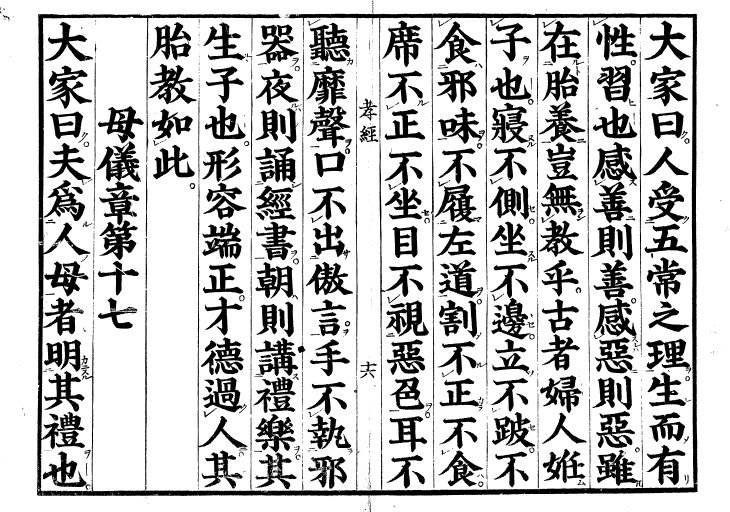 大家曰人受五常之理生而有
性習也感善則善感惡則惡雖
在胎養豈無教乎古者婦人姙
子也寢不側坐不邊立不跛不
食邪味不履左道割不正不食
席不正不坐目不視惡色耳不
孝經
十六
聽靡聲口不出傲言手不執邪
器夜則誦經書朝則講禮樂其
生子也形容端正才德過人其
胎教如此
母儀章第十七
大家曰夫爲人母者明其禮也